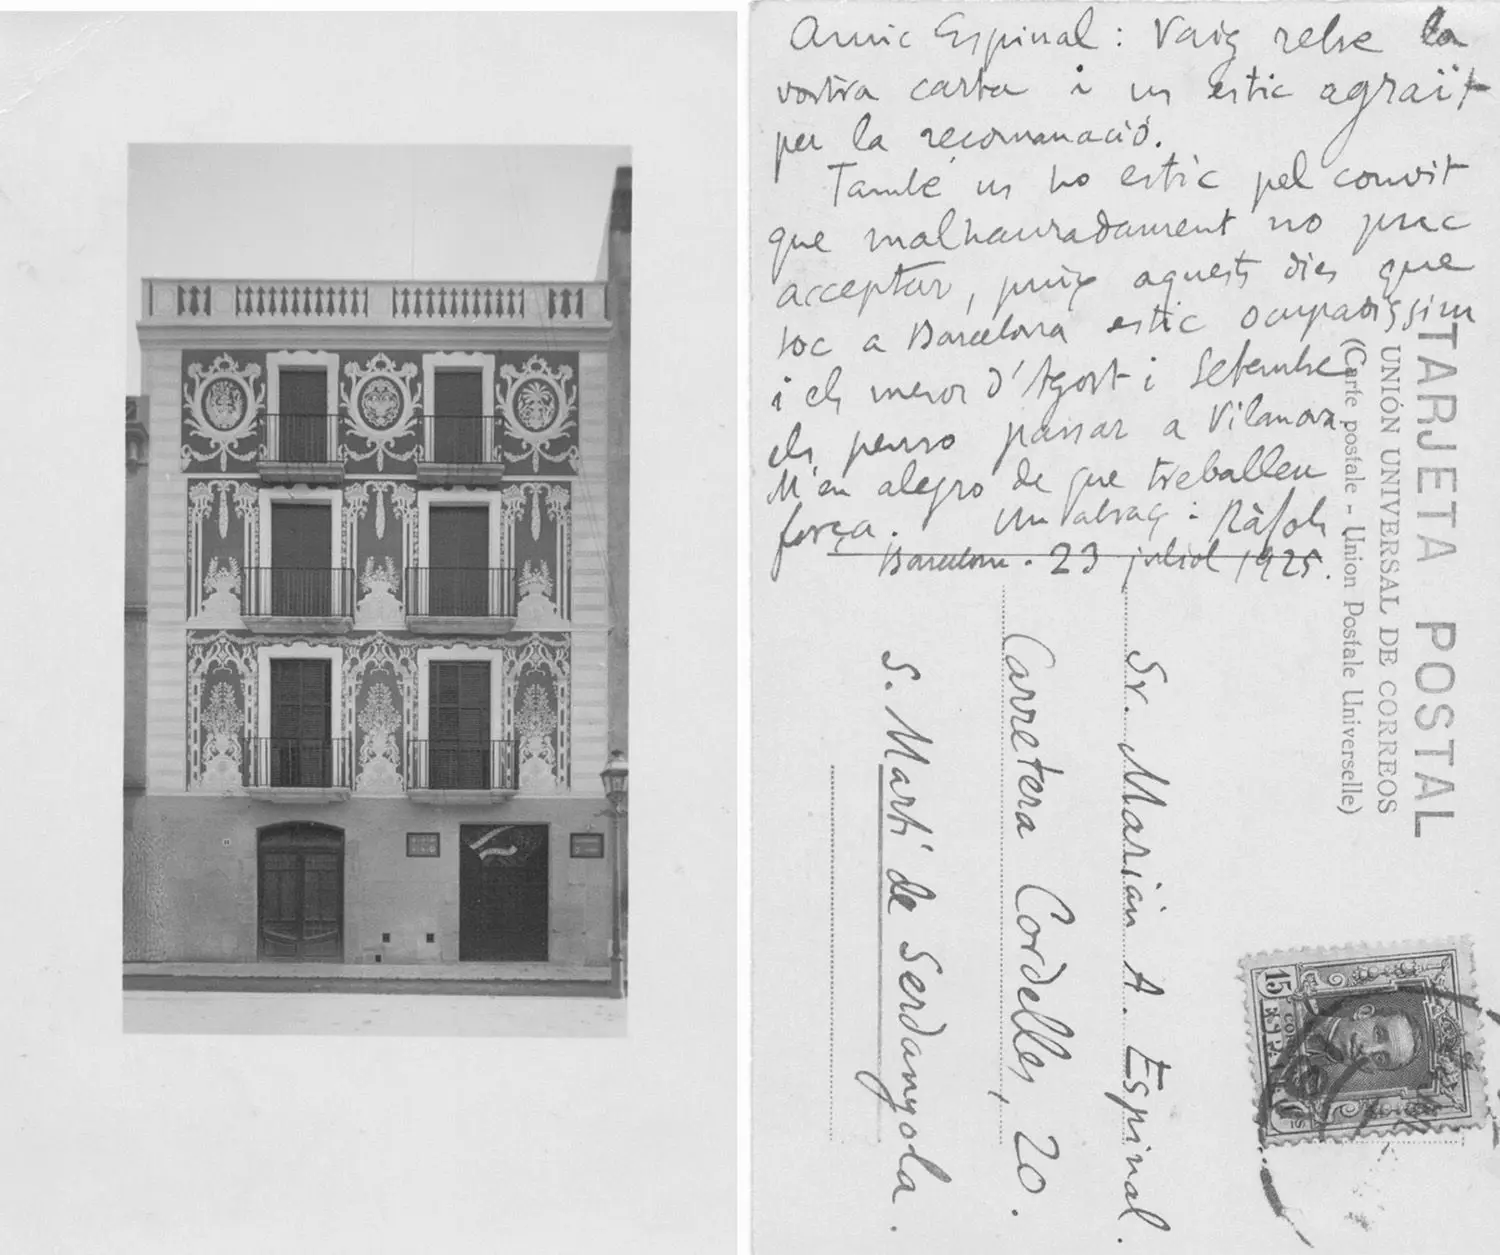 Amic Espinal: Vaig rebre la
vostra carta i us estic agraït
per la recomanació.
També us ho estic pel convit
que malhauradament no puc
acceptar, puig aquests dies que
soc a Barcelona estic ocupadissim
i els mesos d'Agost i Setembre
els penso passar a Vilanova.
M'en alegro de que treballeu
força. Un abraç: Ràfols
Barcelona. 23 juliol 1925.
TARJETA POSTAL
UNIÓN UNIVERSAL DE CORREOS
(Carte postale - Union Postale Universelle)
Sr. Marián A. Espinal.
Carretera Cordelles, 20.
S. Martí de Serdanyola.
15